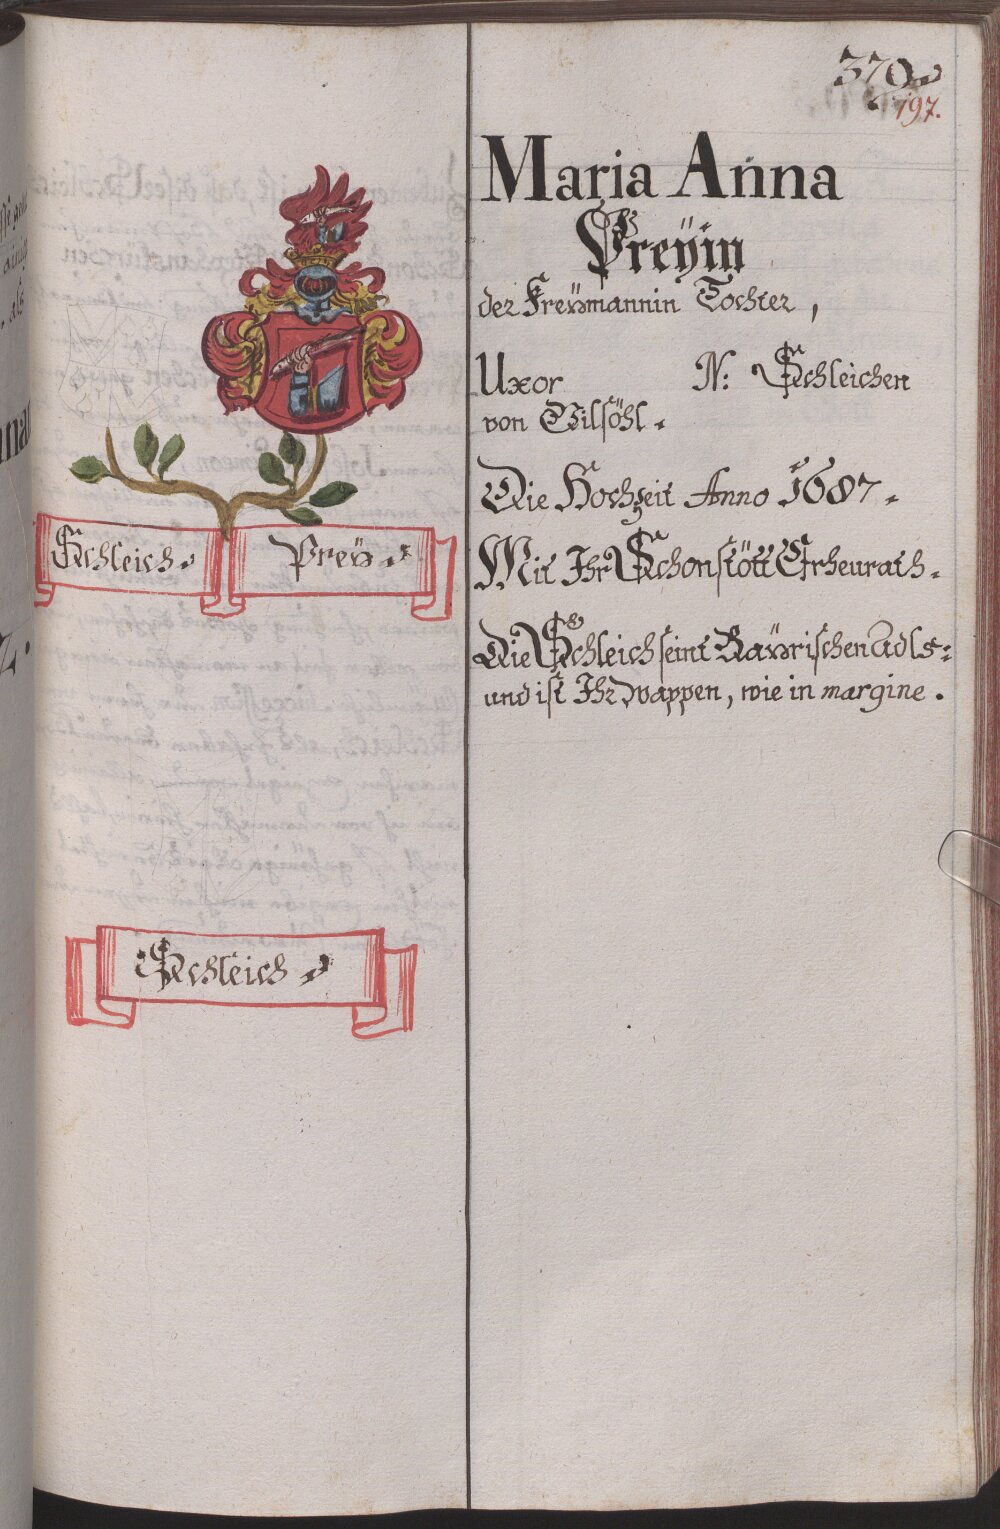 370
197.
Maria Anna
Preÿin
der Freÿmannin Tochter,
Uxor N: Schleichen
von Vilsöhl.
Die Hochzeit Anno 1687.
Mit Ihr Schonstött Erheurath.
Die Schleich seint Baÿrischen Adls:
und ist Ihr Wappen, wie in margine.
Schleich
Preÿ
Schleich